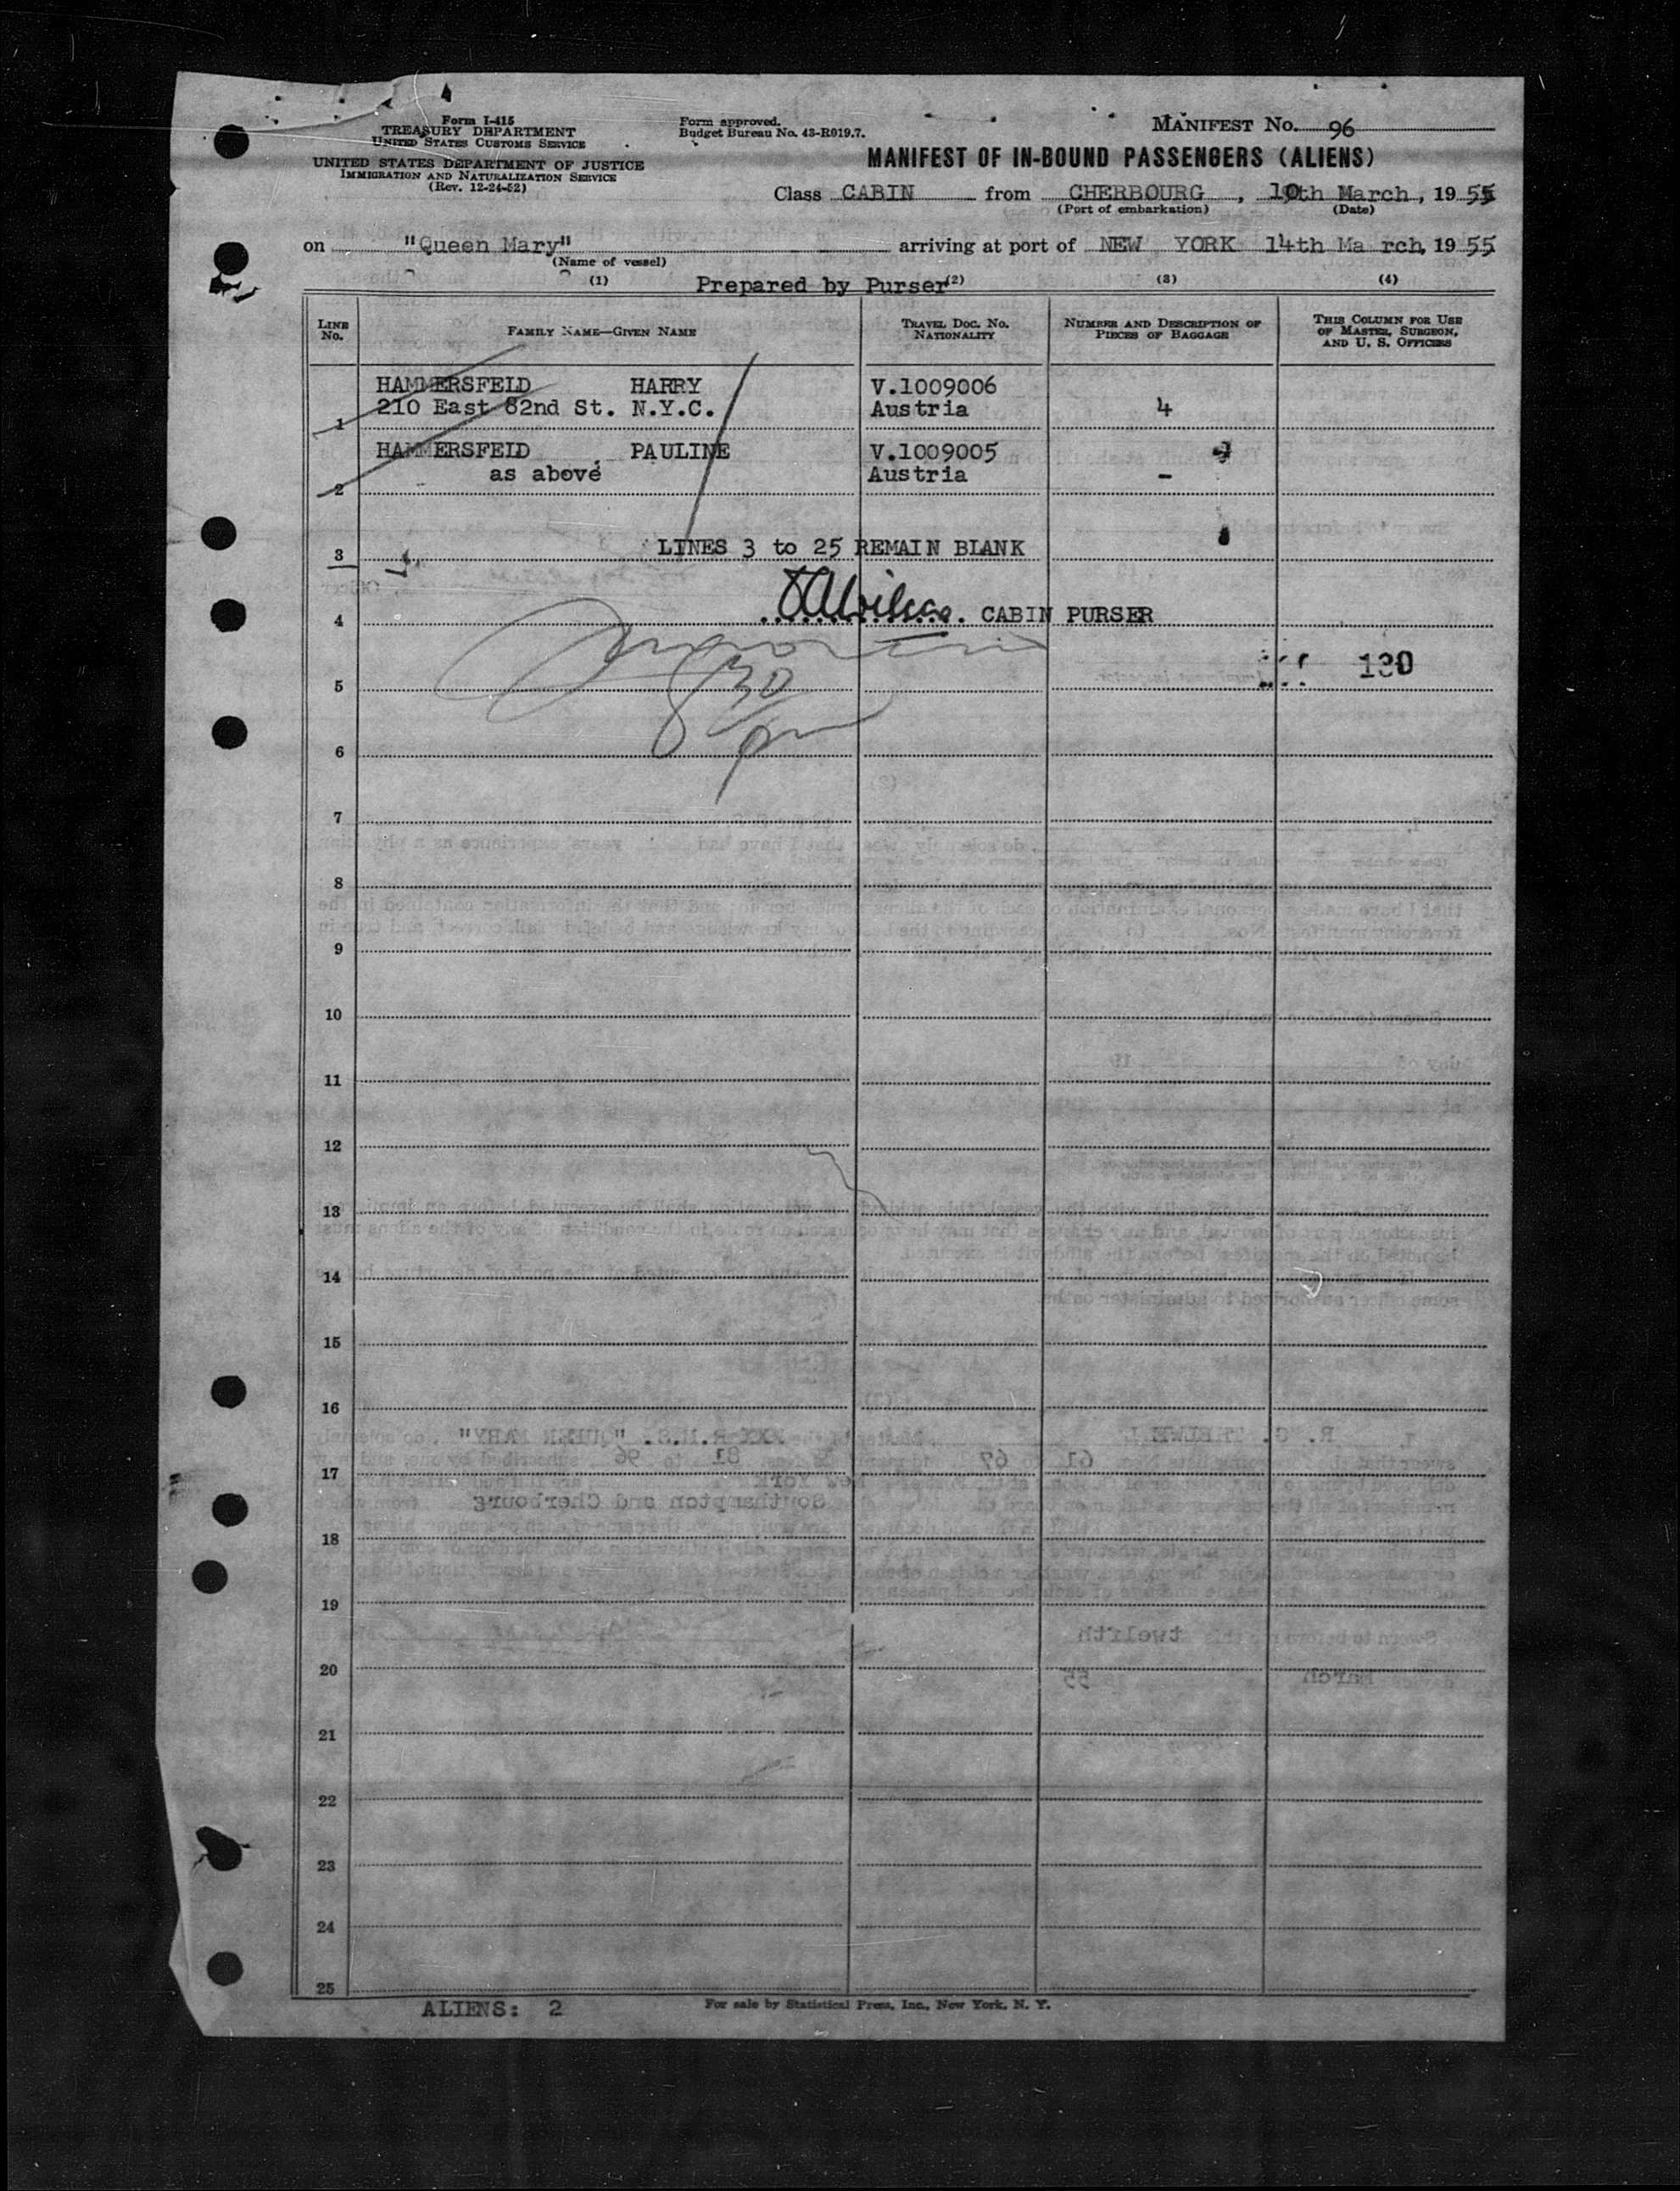 Form I-415
TREASURY DEPARTMENT
UNITED STATES CUSTOMS SERVICE
UNITED STATES DEPARTMENT OF JUSTICE
IMMIGRATION AND NATURALIZATION SERVICE
(Rev. 12-24-52)
Form approved.
Budget Bureau No. 43-R019.7.
MANIFEST No. 96
MANIFEST OF IN-BOUND PASSENGERS (ALIENS)
Class CABIN from CHERBOURG, 10th March, 1955
(Port of embarkation) (Date)
on "Queen Mary" arriving at port of NEW YORK 14th Ma rch, 1955
(Name of vessel)
(1) Prepared by Purser (2) (3) (4)
LINE No. FAMILY NAME—GIVEN NAME TRAVEL DOC. No. NATIONALITY NUMBER AND DESCRIPTION OF PIECES OF BAGGAGE THIS COLUMN FOR USE OF MASTER, SURGEON, AND U. S. OFFICERS
HAMMERSFELD HARRY V.1009006
1 210 East 82nd St. N.Y.C. Austria 4
HAMMERSFELD, PAULINE V.1009005
2 as above Austria -
3 LINES 3 to 25 REMAIN BLANK
4 CABIN PURSER
130
5
6
7
8
9
10
11
12
13
14
15
16
17
18
19
20
21
22
23
24
25
ALIENS: 2 For sale by Statistical Press, Inc., New York, N. Y.